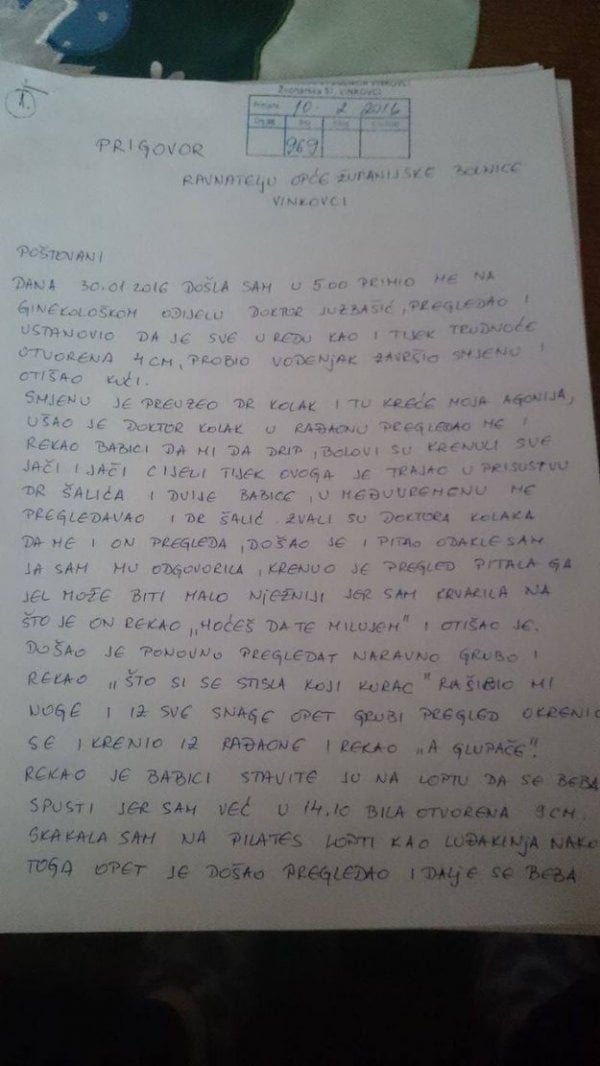 1.
Zvonarska 57, VINKOVCI
10. 2 2016
969
PRIGOVOR
RAVNATELJU OPĆE ŽUPANIJSKE BOLNICE
VINKOVCI
POŠTOVANI
DANA 30.01.2016 DOŠLA SAM U 5.00 PRIMIO ME NA
GINEKOLOŠKOM ODIJELU DOKTOR JUZBAŠIĆ, PREGLEDAO I
USTANOVIO DA JE SVE U REDU KAO I TIJEK TRUDNOĆE
OTVORENA 4 CM, PROBIO VODENJAK ZAVRŠIO SMJENU I
OTIŠAO KUĆI.
SMJENU JE PREUZEO DR KOLAK I TU KREĆE MOJA AGONIJA,
UŠAO JE DOKTOR KOLAK U RAĐAONU PREGLEDAO ME I
REKAO BABICI DA MI DA DRIP, BOLOVI SU KRENULI SVE
JAČI I JAČI CIJELI TIJEK OVOGA JE TRAJAO U PRISUSTVU
DR ŠALIĆA I DVIJE BABICE, U MEĐUVREMENU ME
PREGLEDAVAO I DR ŠALIĆ. ZVALI SU DOKTORA KOLAKA
DA ME I ON PREGLEDA, DOŠAO JE I PITAO ODAKLE SAM
JA SAM MU ODGOVORILA, KRENUO JE PREGLED PITALA GA
JEL MOŽE BITI MALO NJEŽNIJI JER SAM KRVARILA NA
ŠTO JE ON REKAO „HOĆEŠ DA TE MILUJEM" I OTIŠAO JE.
DOŠAO JE PONOVNO PREGLEDAT NARAVNO GRUBO I
REKAO „ŠTO SI SE STISLA KOJI KURAC" RAŠIRIO MI
NOGE I IZ SVE SNAGE OPET GRUBI PREGLED OKRENIO
SE I KRENIO IZ RAĐAONE I REKAO „A GLUPAČE".
REKAO JE BABICI STAVITE JU NA LOPTU DA SE BEBA
SPUSTI JER SAM VEĆ U 14.10 BILA OTVORENA 9 CM.
SKAKALA SAM NA PILATES LOPTI KAO LUĐAKINJA NAKO
TOGA OPET JE DOŠAO PREGLEDAO I DALJE SE BEBA